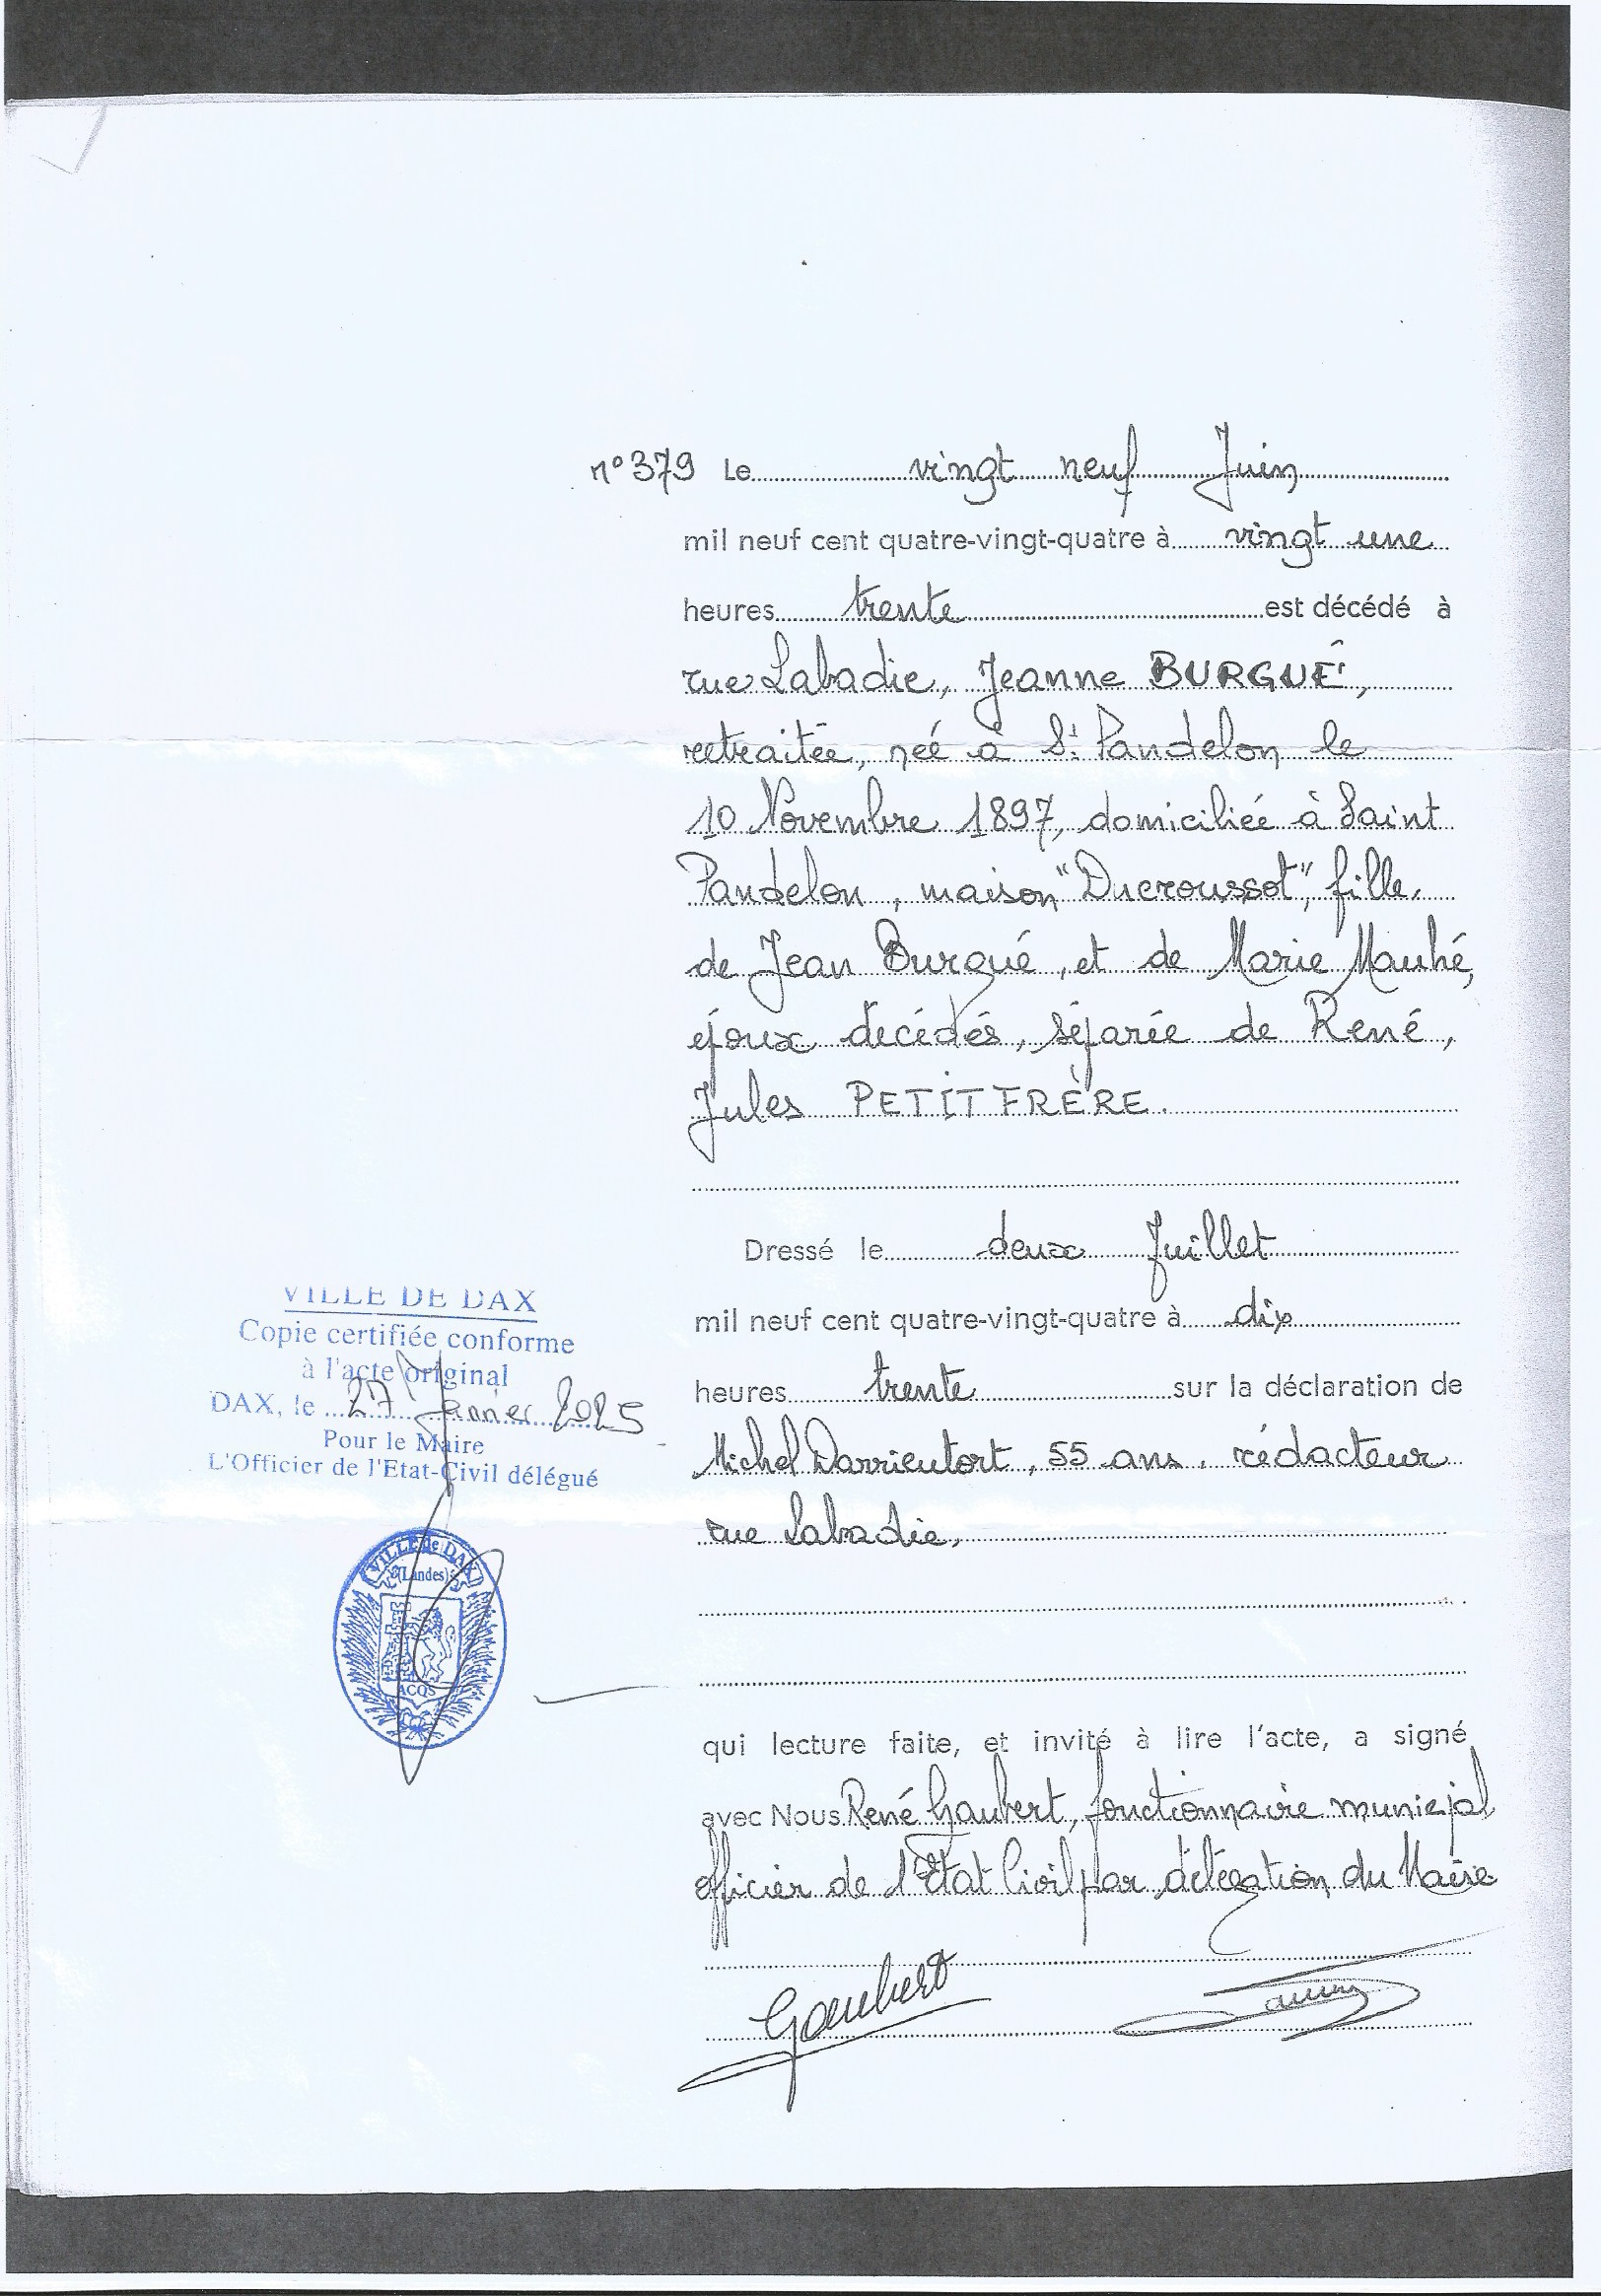 n° 379 Le vingt neuf Juin
mil neuf cent quatre-vingt-quatre à vingt une
heures trente est décédé à
rue Labadie, Jeanne BURGUÉ,
retraitée, née à St Pandelon le
10 Novembre 1897, domiciliée à Saint
Pandelon, maison "Ducroussot", fille
de Jean Burgué, et de Marie Mauhé,
époux décédés, séparée de René,
Jules PETITFRÈRE.
Dressé le deux Juillet
mil neuf cent quatre-vingt-quatre à dix
heures trente sur la déclaration de
Michel Darrieutort, 55 ans, rédacteur
rue Labadie,
qui lecture faite, et invité à lire l'acte, a signé
avec Nous René Gaubert, fonctionnaire municipal
officier de l'Etat Civil par délégation du Maire
Gaubert
VILLE DE DAX
Copie certifiée conforme
à l'acte original
DAX, le 27 Janvier 2025
Pour le Maire
L'Officier de l'Etat-Civil délégué
VILLE de DAX
(Landes)
ACQS